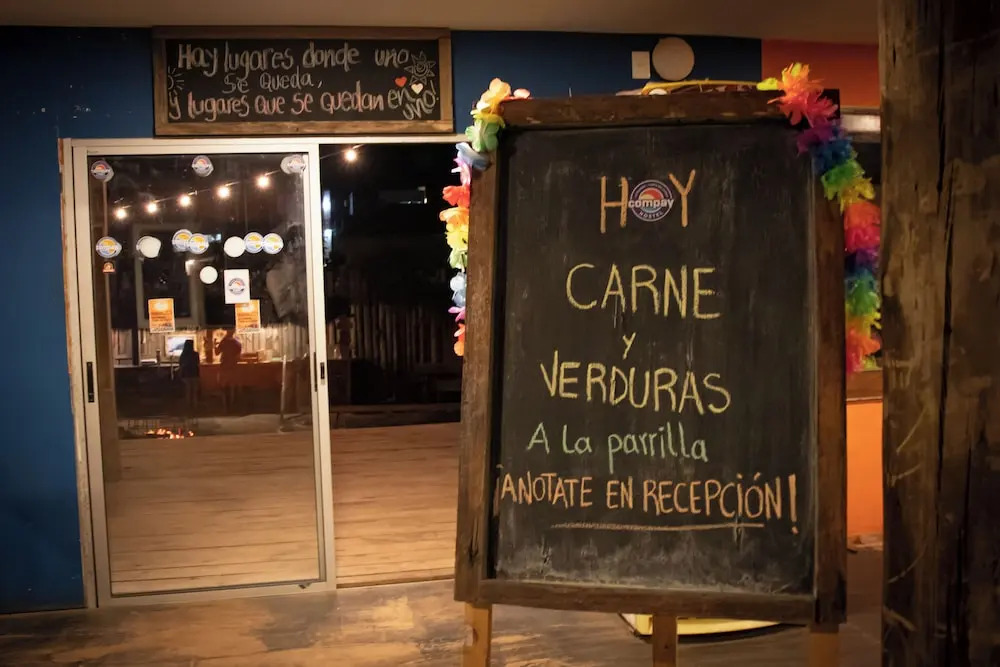 Hay lugares donde uno
se queda,
y lugares que se quedan en
uno
HOY
compay
HOSTEL
CARNE
y
VERDURAS
A la parrilla
¡ANOTATE EN RECEPCIÓN!